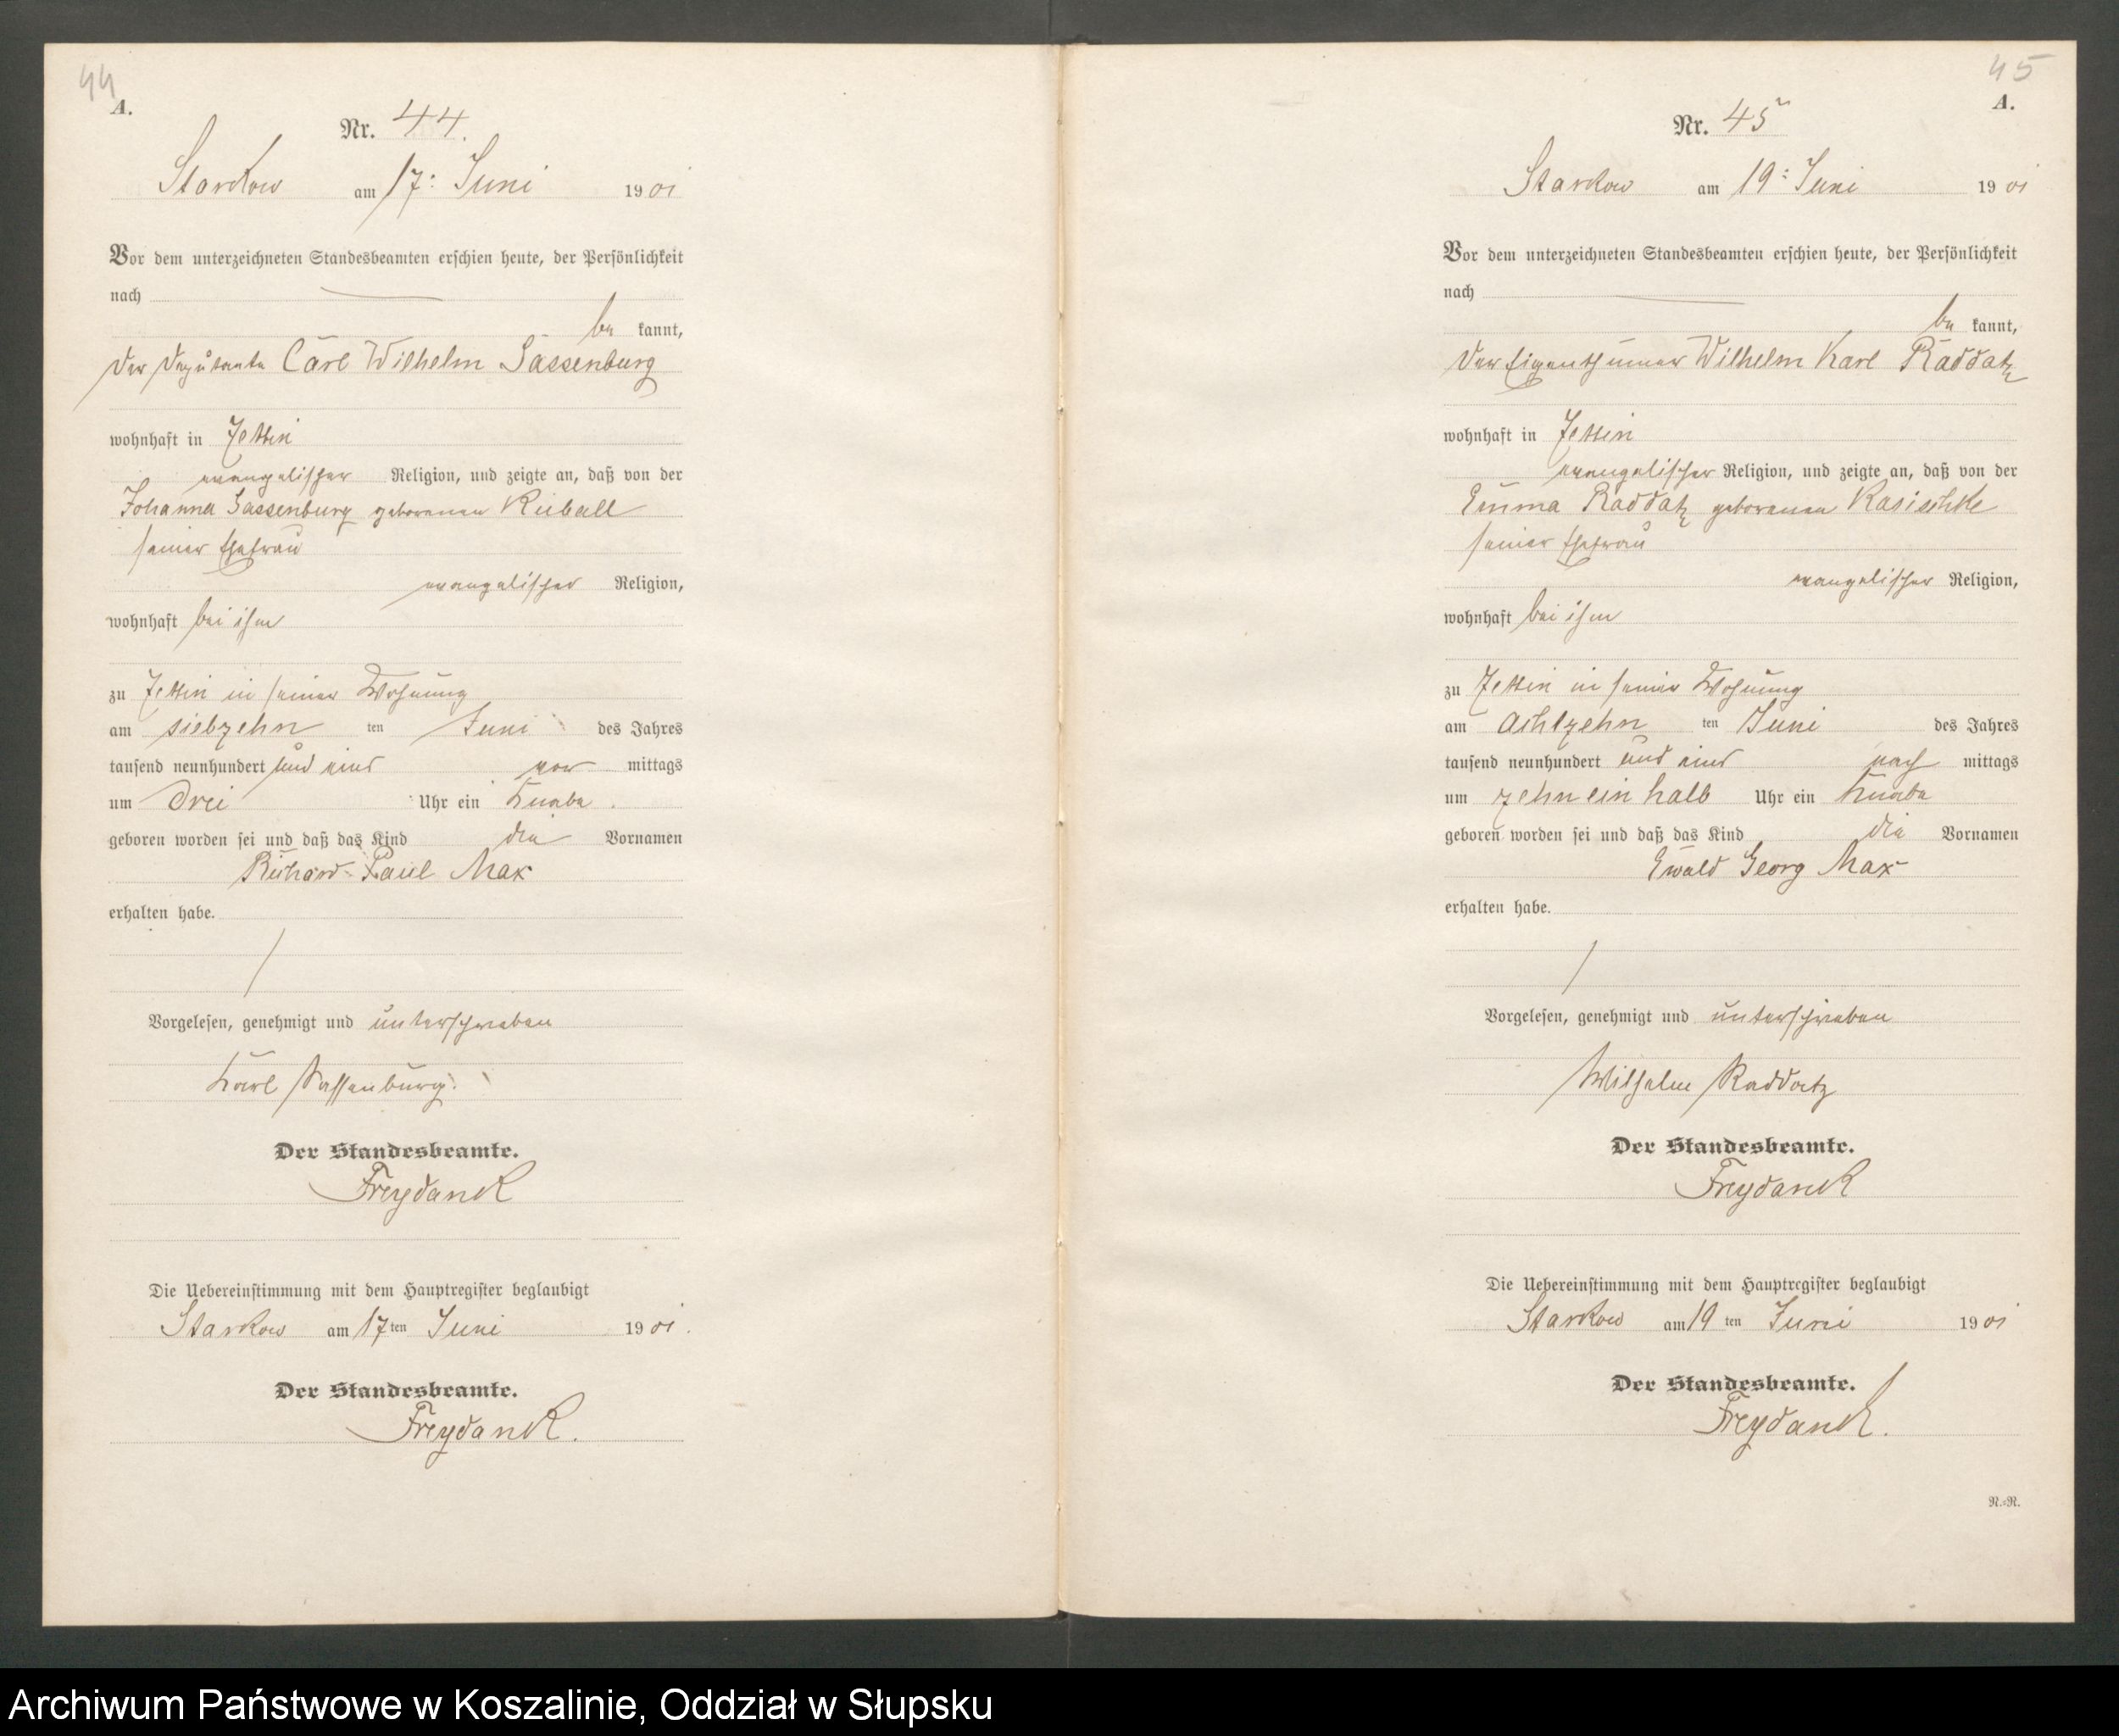 44
A.
Nr. 44.
Starkow am 17: Juni 1901
Vor dem unterzeichneten Standesbeamten erschien heute, der Persönlichkeit
nach
be kannt,
der Deputante Carl Wilhelm Sassenburg
wohnhaft in Jettin
evangelischer Religion, und zeigte an, daß von der
Johanna Sassenburg geborenen
seiner Ehefrau
evangelischer Religion,
wohnhaft bei ihm
zu Jettin in seiner Wohnung
am siebzehn ten Juni des Jahres
tausend neunhundert und eins vor mittags
um drei Uhr ein Knabe
geboren worden sei und daß das Kind die Vornamen
Richard Paul Max
erhalten habe.
Vorgelesen, genehmigt und unterschrieben
Karl Sassenburg.
Der Standesbeamte.
Freydank
Die Uebereinstimmung mit dem Hauptregister beglaubigt
Starkow am 17 ten Juni 1901.
Der Standesbeamte.
Freydank.
45
A.
Nr. 45
Starkow am 19: Juni 1901
Vor dem unterzeichneten Standesbeamten erschien heute, der Persönlichkeit
nach
be kannt,
der Eigenthümer Wilhelm Karl Raddatz
wohnhaft in Jettin
evangelischer Religion, und zeigte an, daß von der
Emma Raddatz geborenen Kasischke
seiner Ehefrau
evangelischer Religion,
wohnhaft bei ihm
zu Jettin in seiner Wohnung
am achtzehn ten Juni des Jahres
tausend neunhundert und eins nach mittags
um zehn ein halb Uhr ein Knabe
geboren worden sei und daß das Kind die Vornamen
Ewald Georg Max
erhalten habe.
Vorgelesen, genehmigt und unterschrieben
Wilhelm Raddatz
Der Standesbeamte.
Freydank
Die Uebereinstimmung mit dem Hauptregister beglaubigt
Starkow am 19 ten Juni 1901
Der Standesbeamte.
Freydank.
N.-N.
Archiwum Państwowe w Koszalinie, Oddział w Słupsku